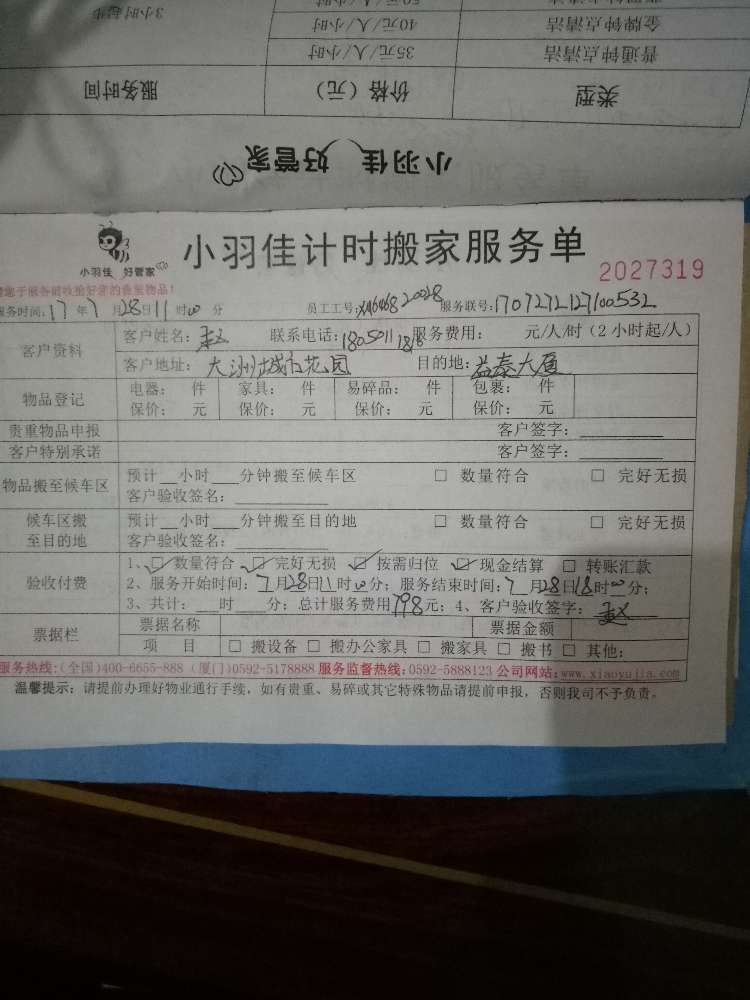 50元/人/小时
3小时起步
金牌钟点清洁 40元/人/小时
普通钟点清洁 35元/人/小时
类型 价格（元） 服务时间
小羽佳 好管家
小羽佳 好管家
小羽佳计时搬家服务单
2027319
服务时间:17年7月28日11时00分 员工工号: 服务联号:1707272127100532
客户资料 客户姓名: 联系电话: 服务费用: 元/人/时(2小时起/人)
客户地址: 大洲城市花园 目的地: 益泰大厦
物品登记 电器: 件 家具: 件 易碎品: 件 包裹: 件
保价: 元 保价: 元 保价: 元 保价: 元
贵重物品申报 客户签字:
客户特别承诺 客户签字:
物品搬至候车区 预计__小时___分钟搬至候车区 □ 数量符合 □ 完好无损
客户验收签名:
候车区搬至目的地 预计__小时___分钟搬至目的地 □ 数量符合 □ 完好无损
客户验收签名:
验收付费 1、☑数量符合 ☑完好无损 ☑按需归位 ☑现金结算 □ 转账汇款
2、服务开始时间:7月28日11时00分; 服务结束时间:7月28日18时00分;
3、共计:___时___分; 总计服务费用798元; 4、客户验收签字:
票据栏 票据名称 票据金额
项 目 □ 搬设备 □ 搬办公家具 □ 搬家具 □ 搬书 □ 其他:
服务热线:(全国)400-6655-888 (厦门)0592-5178888 服务监督热线:0592-5888123 公司网站:www.xiaoyujia.com
温馨提示: 请提前办理好物业通行手续, 如有贵重、易碎或其它特殊物品请提前申报, 否则我司不予负责。